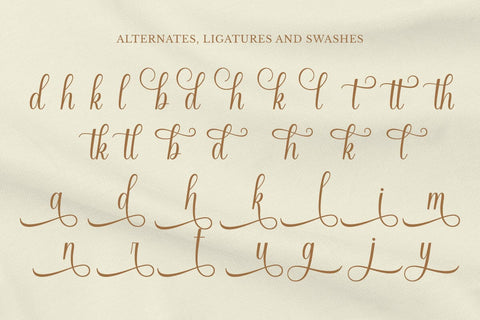 ALTERNATES, LIGATURES AND SWASHES
d h k l b d h k l t tt th
tk tl b d h k l
a d h k l i m
n r t u g j y